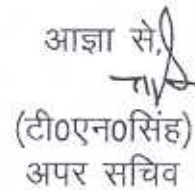 आज्ञा से,
(टी0एन0सिंह)
अपर सचिव